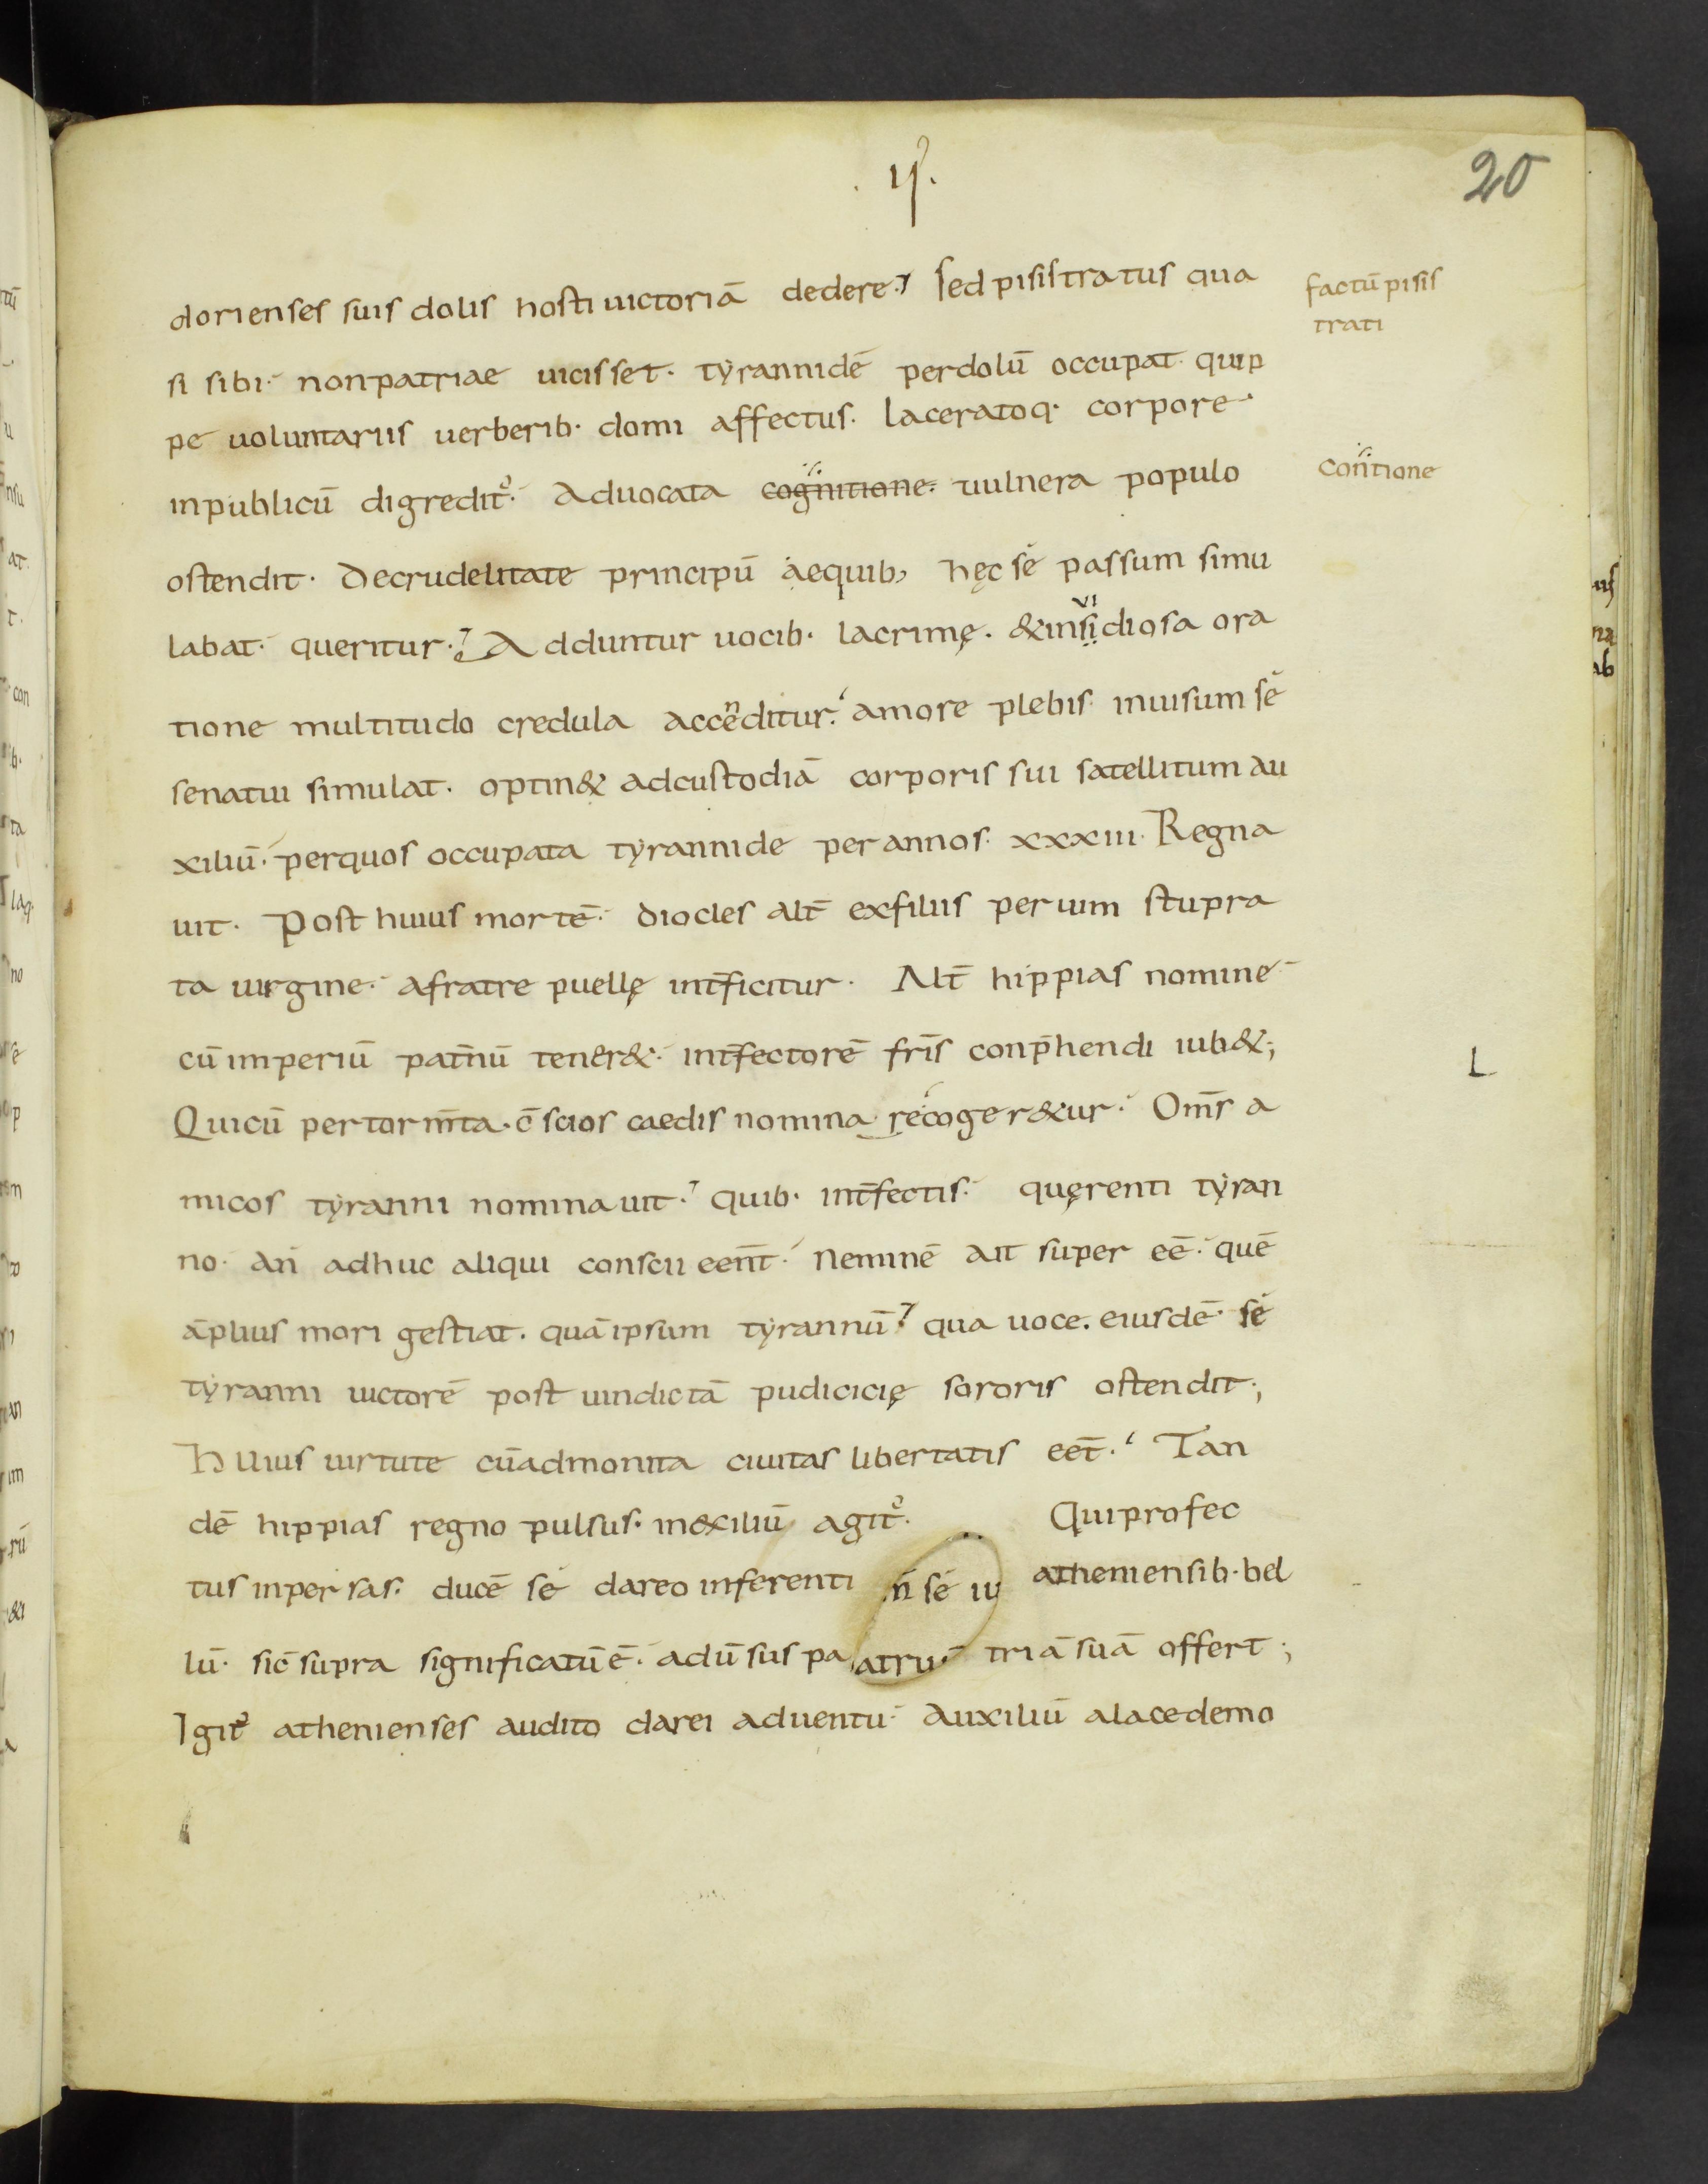 .ıı.
20
dorienses suis dolis hosti uictoriā dedere. Sed pisistratus qua
factū pisis
trati
si sibi. non patriae uicisset. tyrannidē per dolū occupat. quip
pe uoluntariis uerberib. domi affectus. laceratoq. corpore.
in publicū digredit᷒. Aduocata cognitione. uulnera populo
contione
ostendit. De crudelitate principū a equib, hęc sé passum simu
labat. queritur. Adduntur uocib. lacrimę. & insidiosa ora
ui
tione multitudo credula accenditur. amore plebis. inuisum sé
senatui simulat. optin& ad custodiā corporis sui satellitum au
xiliū. per quos occupata tyrannide per annos. xxxiii. Regna
uit. Post huius mortē. diocles alt̄ ex filiis per uim stupra
ta uirgine. a fratre puellę int̄ficitur. Alt̄ hippias nomine
cū imperiū pat̄nū tener&. int̄fectorē fr̄is conp̄hendi iub&;
L
Qui cū per torm̄ta. c̄scios caedis nomina re coger&ur. Om̄s a
micos tyranni nominauit. quib. int̄fectis. quęrenti tyran
no. an adhuc aliqui conscii eēnt. Neminē ait super eē. quē
āplius mori gestiat. quā ipsum tyrannū. qua uoce. eiusdē sé
tyranni uictorē post uindictā pudicicię sororis ostendit;
Huius uirtute cū admonita ciuitas libertatis eēt. Tan
dē hippias regno pulsus. in exiliū agit᷒. Qui profec
tus in persas. ducē sé dareo inferenti n̄ sé iu atheniensib. bel
lū. sic̄ supra significatū ē. adū sus pa atru triā suā offert;
Igit᷒ athenienses audito darei aduentu. Auxiliū a lacedemo